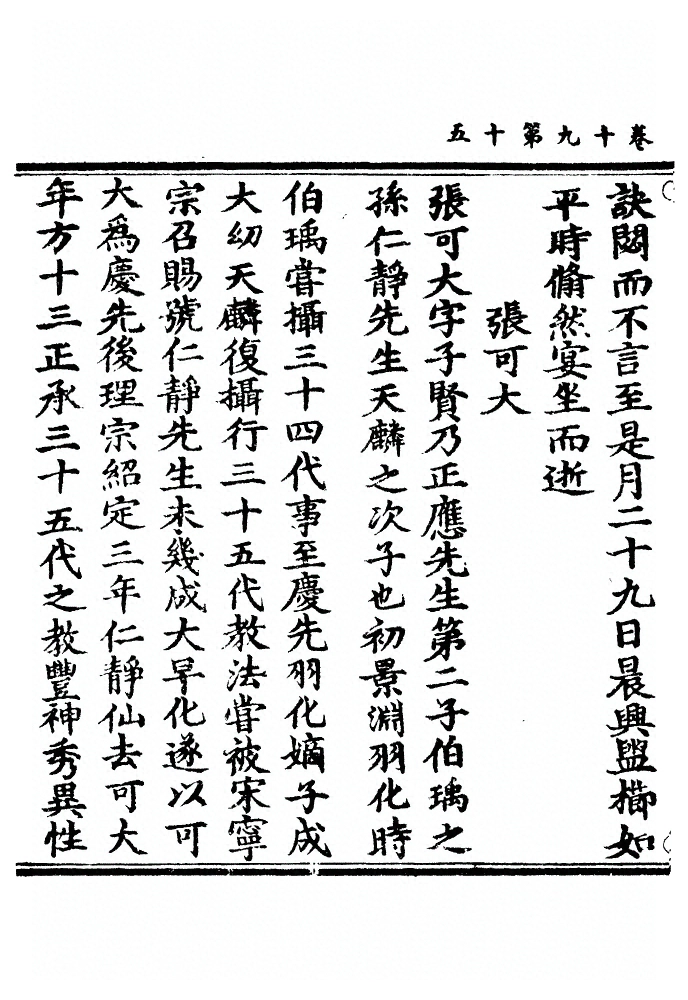 卷十九第十五
訣閟而不言至是月二十九日晨興盥櫛如
平時翛然宴坐而逝
張可大
張可大字子賢乃正應先生第二子伯瑀之
孫仁靜先生天麟之次子也初景淵羽化時
伯瑀嘗攝三十四代事至慶先羽化嫡子成
大幼天麟復攝行三十五代教法嘗被宋寧
宗召賜號仁靜先生未幾成大早化遂以可
大爲慶先後理宗紹定三年仁靜仙去可大
年方十三正承三十五代之教豐神秀異性